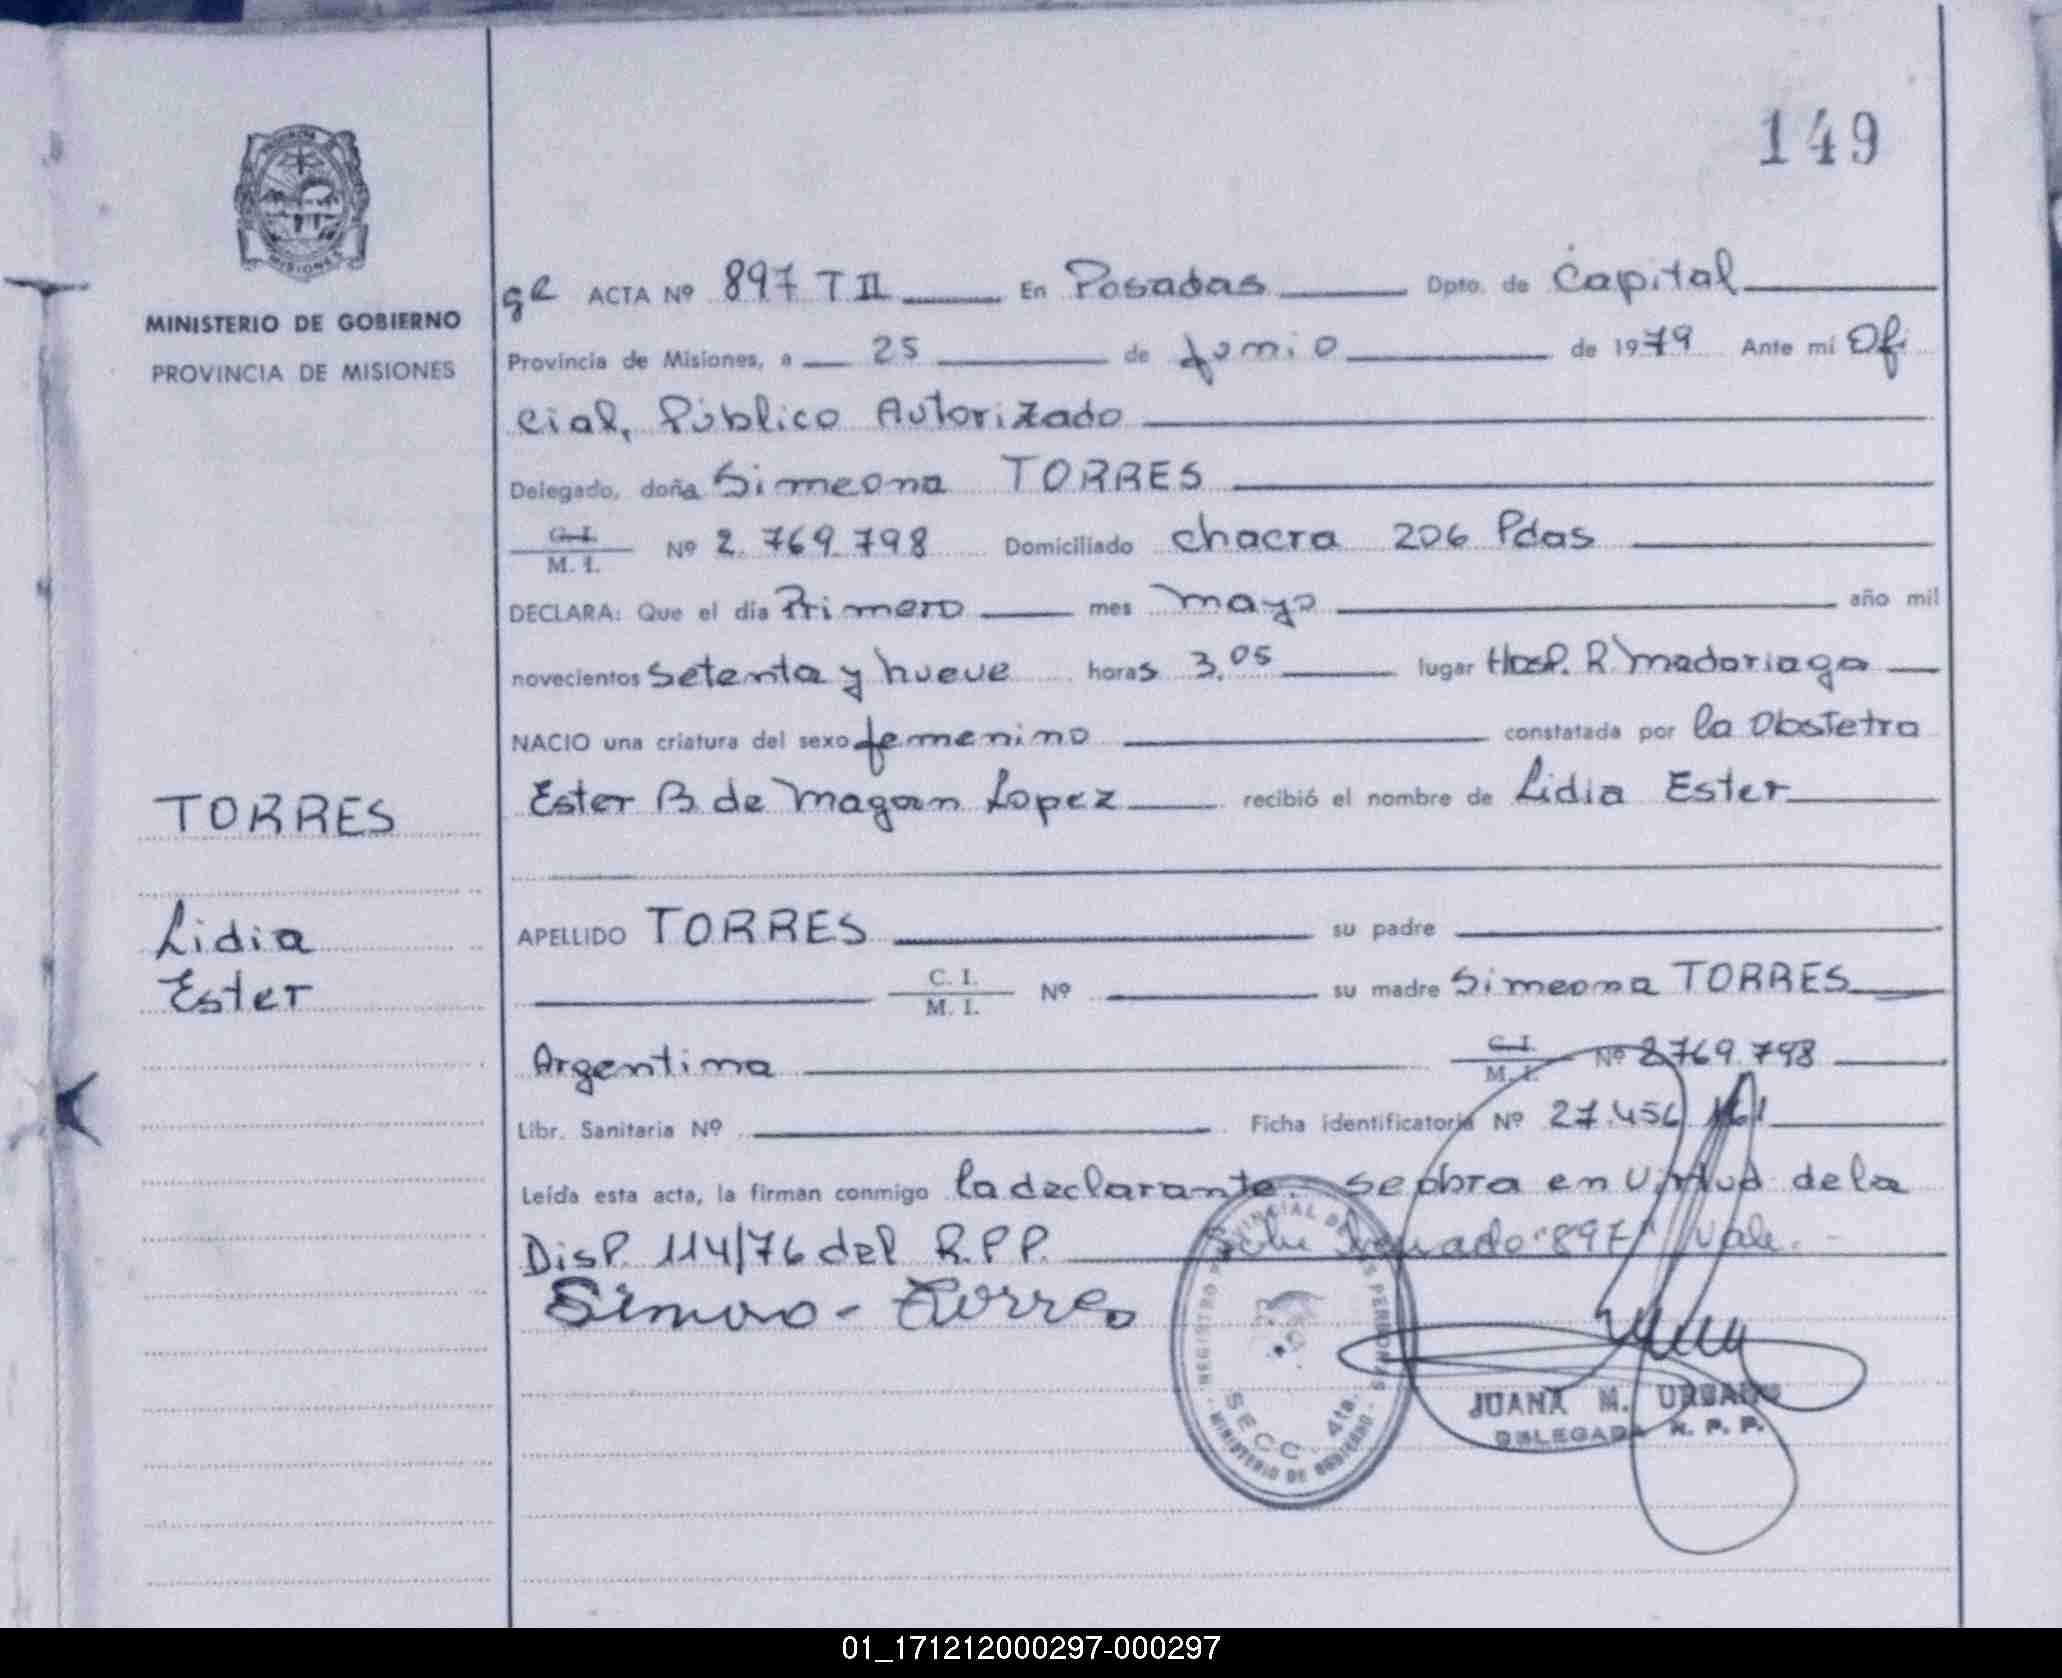 149
MISIONES
MINISTERIO DE GOBIERNO
PROVINCIA DE MISIONES
TORRES
Lidia
Ester
ACTA Nº 897 T II En Posadas Dpto. de Capital
Provincia de Misiones, a 25 de Junio de 1979 Ante mí Ofi
cial, Público Autorizado
Delegado, doña Simeona TORRES
C. I.
M. I. Nº 2.769.798 Domiciliado chacra 206 Pdas
DECLARA: Que el día Primero mes mayo año mil
novecientos setenta y nueve horas 3,05 lugar Hosp. R. Madariaga
NACIO una criatura del sexo femenino constatada por la Obstetra
Ester B de Magan Lopez recibió el nombre de Lidia Ester
APELLIDO TORRES su padre
C. I.
M. I. Nº su madre Simeona TORRES
Argentina C. I.
M. I. Nº 2.769.798
Libr. Sanitaria Nº Ficha identificatoria Nº 27.456.161
Leída esta acta, la firman conmigo la declarante. se obra en virtud de la
Disp. 114/76 del R.P.P. "897" Vale.-
Torres
REGISTRO PROVINCIAL DE LAS PERSONAS
SECC. 4ta.
MINISTERIO DE GOBIERNO
JUANA M. URBANO
DELEGADA R. P. P.
01_171212000297-000297